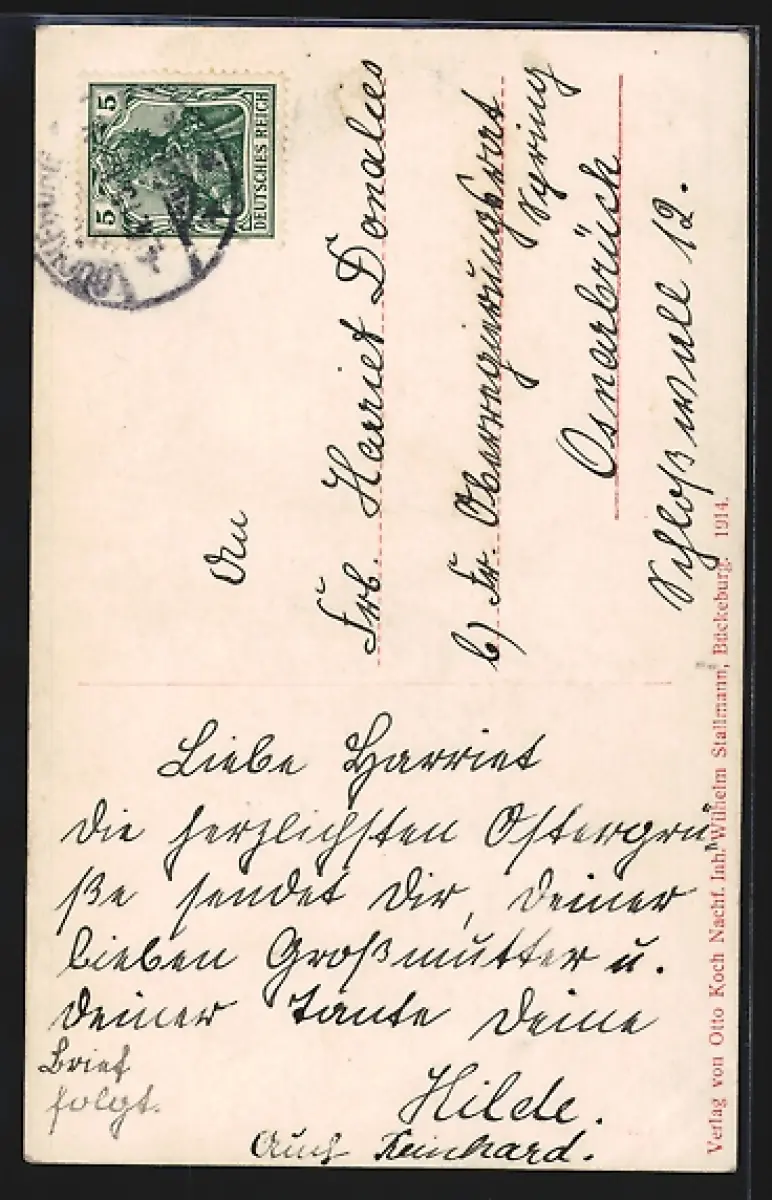 5 5
DEUTSCHES REICH
An
Frl. Harriet Donalies
b) Fr. Oberregierungsrat
Syring
Osnabrück
Schloßwall 12.
Liebe Harriet
die herzlichsten Ostergrü
ße sendet Dir, Deiner
lieben Großmutter u.
Deiner Tante Deine
Hilde.
Brief
folgt.
Auch Reinhard.
Verlag von Otto Koch Nachf. Inh. Wilhelm Stallmann, Bückeburg. 1914.